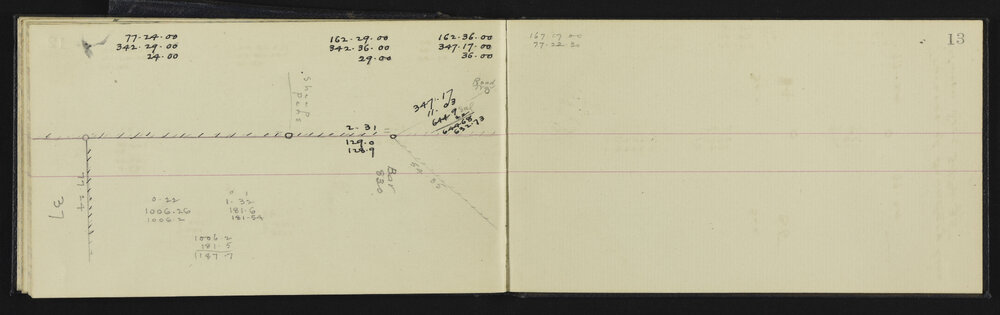 77-24-00
342-29-00
24-00
162-29-00
342-36-00
29-00
162-36-00
347-17-00
36-00
167 17 00
77-22 30
13
Sheep
Pens
Road
347-17
11-03
644-9
644-68
632-73
2-31
129.0
128.9
Bar
880
77 24
37
0-22
1006-26
1006-2
0 1
1-32
181-6
181-54
1006 2
181-5
1187-7